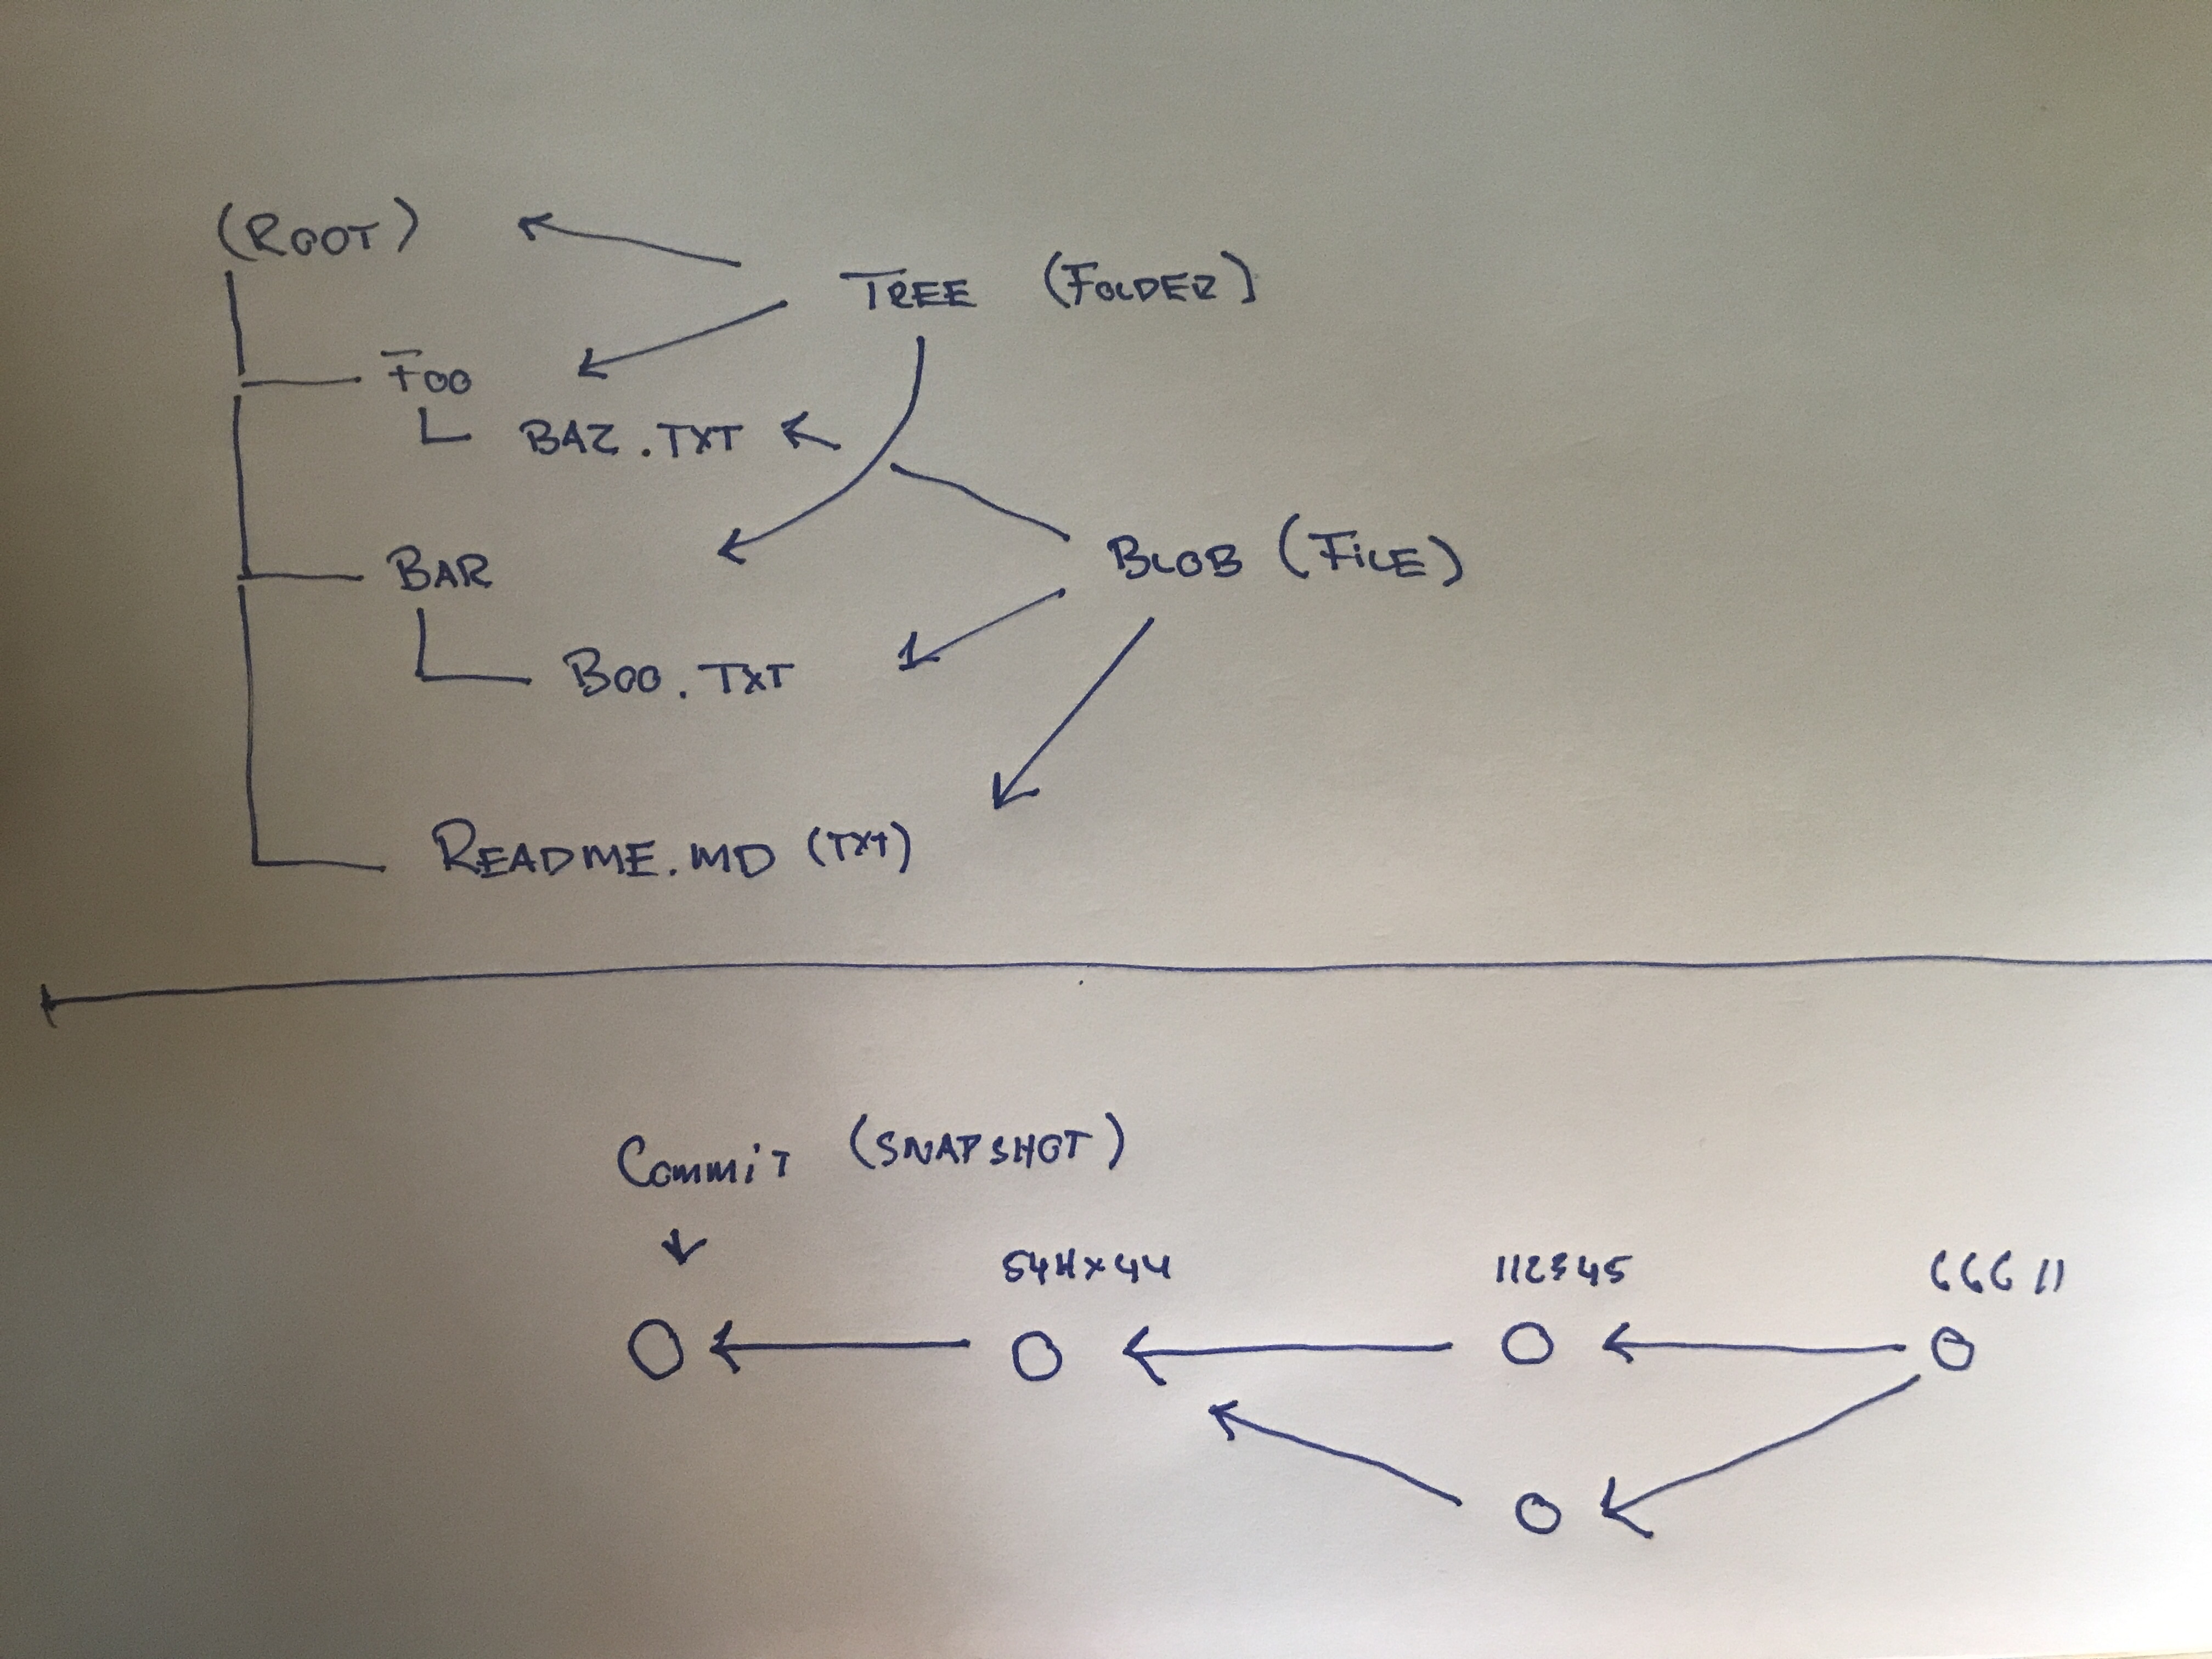 (ROOT)
TREE (FOLDER)
FOO
BAZ.TXT
BAR
BLOB (FILE)
BOO.TXT
README.MD (TXT)
COMMIT (SNAPSHOT)
54HX44
112345
66611